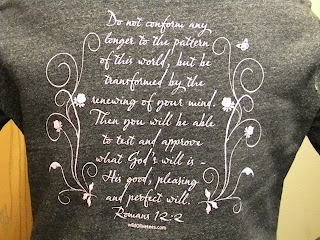 Do not conform any
longer to the pattern
of this world, but be
transformed by the
renewing of your mind.
Then you will be able
to test and approve
what God's will is -
His good, pleasing
and perfect will.
Romans 12:2
wildolivetees.com